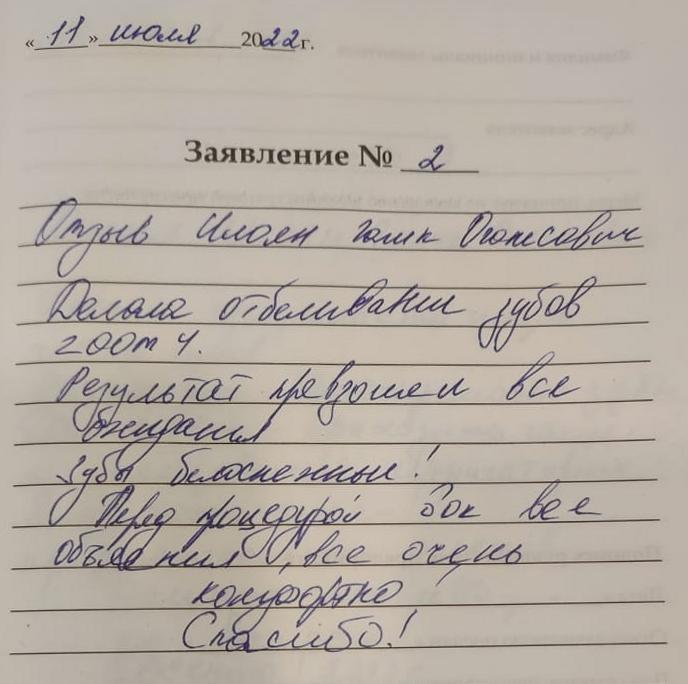 « 11 » июля 2022 г.
Заявление № 2
Отзыв Илоян Гагик Оганесович
Делала отбеливании зубов
zoom 4.
Результат превзошел все
ожидания
Зубы белоснежные!
Перед процедурой док все
объяснил, все очень
комфортно
Спасибо!